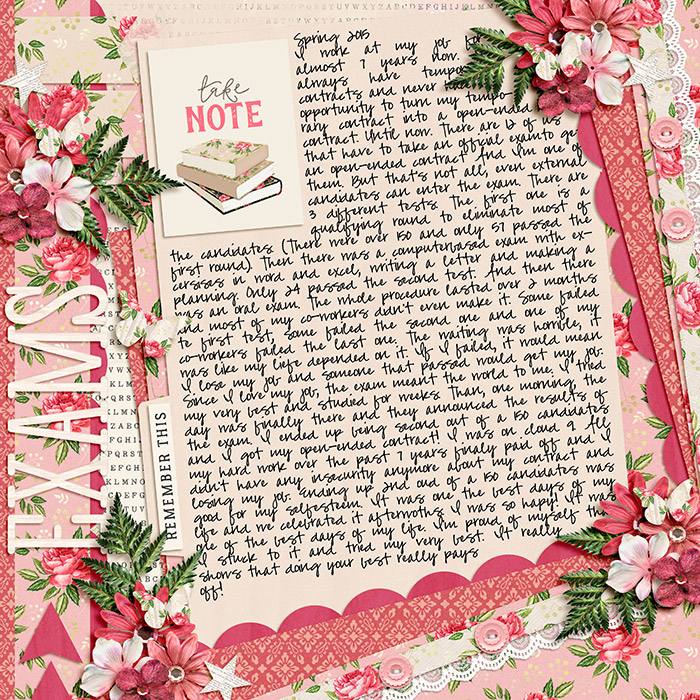 take
NOTE
EXAMS
REMEMBER THIS
Spring 2015
I work at my job for
almost 7 years now.
always have tempo
contracts and never had
opportunity to turn my tempo-
rary contract into a open-ended
contract. Until now. There are 12 of us
that have to take an official exam to get
an open-ended contract. And I'm one of
them. But that's not all, even external
candidates can enter the exam. There are
3 different tests. The first one is a
qualifying round to eliminate most of
the candidates (There were over 150 and only 57 passed the
first round). Then there was a computerbased exam with ex-
cersises in word and excel, writing a letter and making a
planning. Only 24 passed the second test. And then there
was an oral exam. The whole procedure lasted over 2 months
and most of my co-workers didn't even make it. Some failed
te first test, some failed the second one and one of my
co-workers failed the last one. The waiting was horrible, it
was like my life depended on it. If I failed, it would mean
I lose my job and someone that passed would get my job.
Since I love my job, the exam meant the world to me. I tried
my very best and studied for weeks. Than, one morning, the
day was finally there and they announced the results of
the exam. I ended up being second out of a 150 candidates
and I got my open-ended contract! I was on cloud 9. All
my hard work over the past 7 years finaly paid off and I
didn't have any insecurity anymore about my contract and
losing my job. Ending up 2nd out of a 150 candidates was
good for my selfesteem. It was one the best days of my
life and we celebrated it afterwoths. I was so hapy! It was
one of the best days of my life. I'm proud of myself the
I stuck to it and tried my very best. It really
shows that doing your best really pays
off!